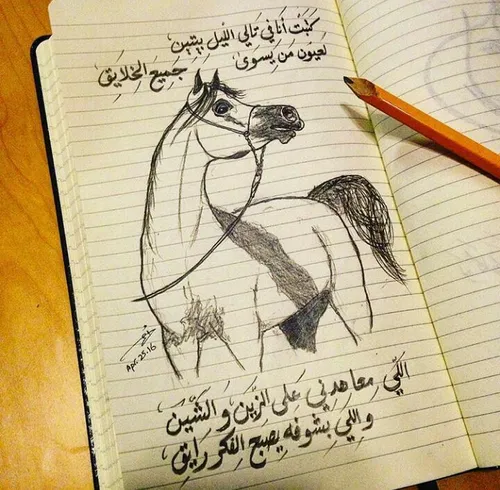 كَتَبْت أنَا في تَالي اللّيل بِيتين
لَعيُون مَن يِسوى جَميع الخلايِق
Apr.25.16
اللّي مْعاهدني عَلى الزّين و الشّين
و اللي بِشوفِه يصبح الفكر رَايِق